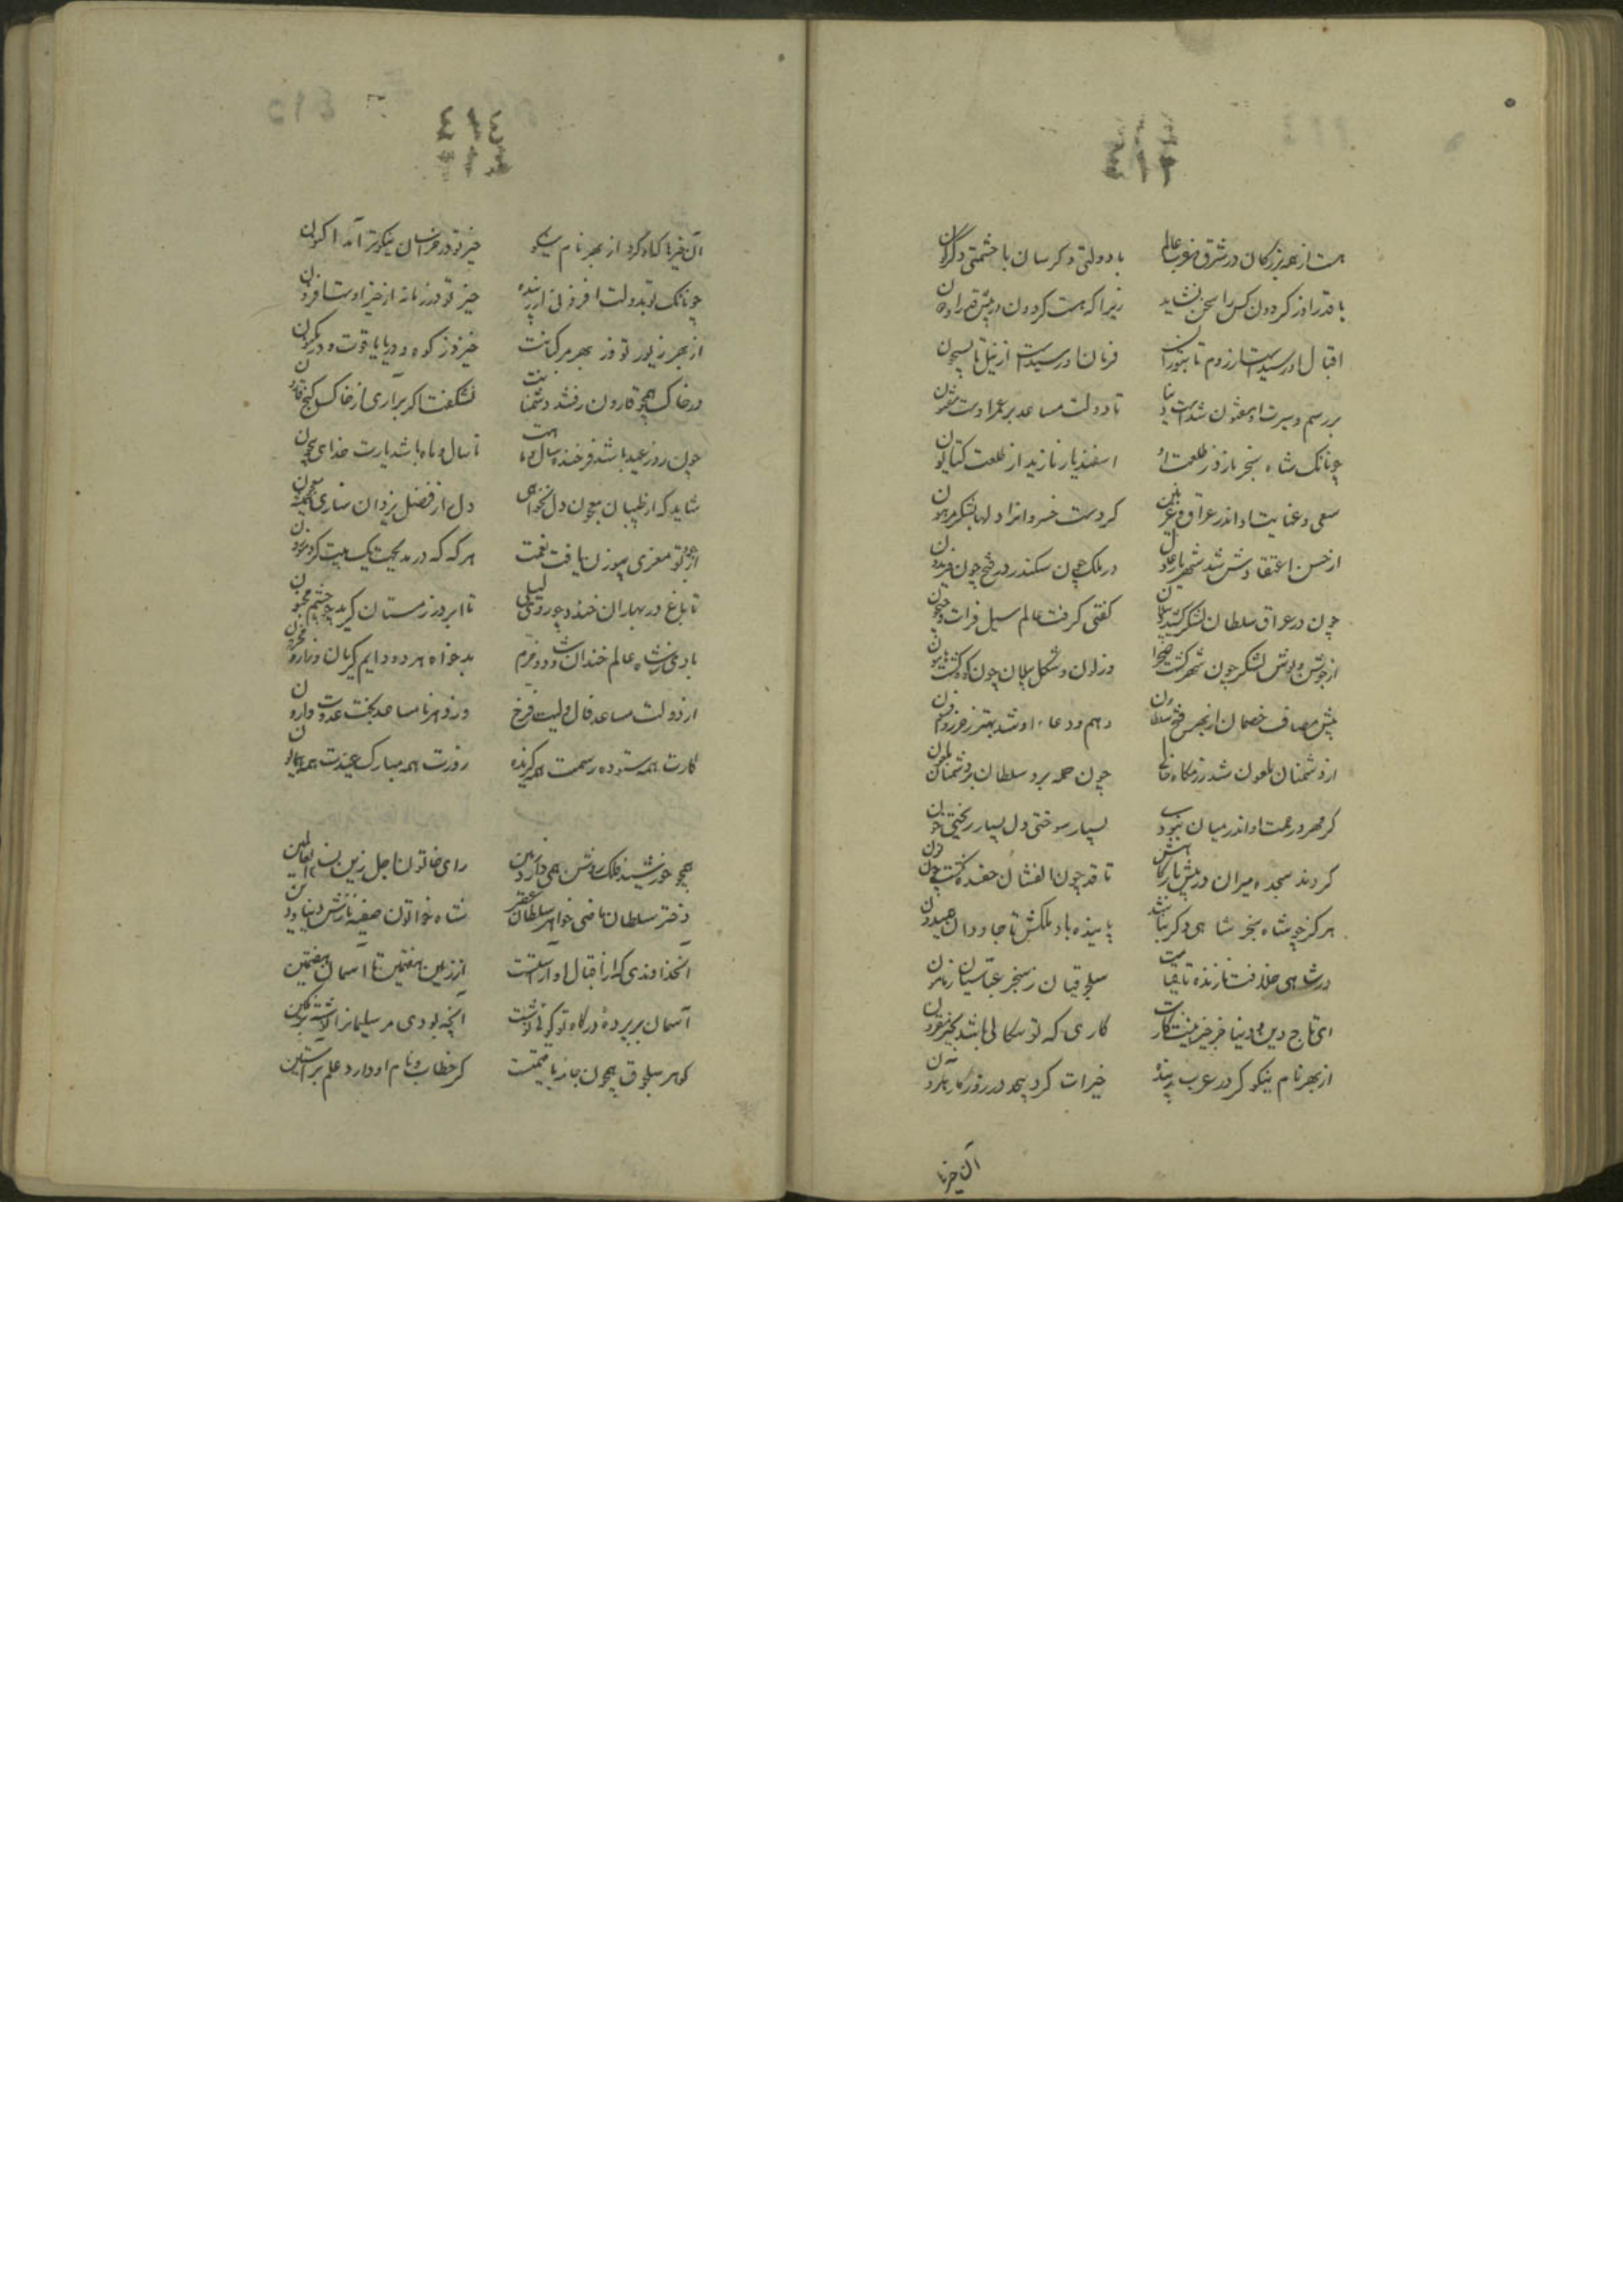 ٤١٣
هست از همه بزرگان در شرق و غرب عالم با دولتی دگرسان با حشمتی دگرگون
با قدر او ز گردون کس را سخن نشاید زیرا که هست گردون در پیش قدر او دون
اقبال او رسیدست از روم تا بتوران فرمان او رسیدست از نیل تا بسیحون
بر رسم و سیرت او مفتون شدست دنیا تا دولت مساعد بر عمر اوست مفتون
چونانک شاه سنجر نازد ز طلعت او اسفندیار نازید از طلعت کتایون
سعی و عنایت او اندر عراق و غزنین کردست خسروانرا دلها بشکر مرهون
از حسن اعتقادش شد شهریار عادل در ملک چون سکندر در فتح چون فریدون
چون در عراق سلطان لشکر کشید گفتی گرفت عالم سیل فرات و جیحون
از جوش و پوشش لشکر چون شهر گشت صحرا وز لون و شکل پیلان چون کوه گشت هامون
پیش مصاف خصمان از بهر فتح سلطان دهم و دعاء او شد بهتر ز حرز و افسون
از دشمنان ملعون شد رزمگاه خالی چون حمله برد سلطان بر دشمنان ملعون
گر مهر و رحمت او اندر میان نبودی بسیار سوختی دل بسیار ریختی خون
کردند سجده میران در پیش بارگاهش تا قد چون الفشان خفته گشت چون نون
هرگز چو شاه سنجر شاهی دگر نباشد پاینده باد ملکش تا جاودان همیدون
در شاهی و خلافت نازنده تا قیامت سلجوقیان ز سنجر عباسیان ز مامون
ای تاج دین و دنیا جز خیر نیست کارت کاری که تو سگالی باشد بخیر مقرون
از بهر نام نیکو کرد در عرب زبیده خیرات گرد بیحد در روزگار هارون
آن خیرها
٤١٤
آن خیرها که او کرد از بهر نام نیکو خیر تو در خراسان نیکوتر آمد اکنون
چونانک تو بدولت افزونی از زبیده خیر تو در زمانه از خیر اوست افزون
از بهر زیور تو وز بهر مرکبانت خیزد ز کوه و دریا یاقوت و در مکنون
در خاک همچو قارون رفتند دشمنانت نشگفت اگر برآری از خاک گنج قارون
چون روز عید باشد فرخنده سال و ماهت تا سال و ماه باشد یارت خدای بیچون
شاید که از طبیبان معجون دل نخواهی دل از فضل یزدان سازی همیشه معجون
از جود تو معزی پیوزن یافت نعمت هر که که در مدیحت یک بیت کرد موزون
تا باغ در بهاران خندد چو روی لیلی تا ابر در زمستان گرید چو چشم مجنون
بادی ز شاه عالم خندان و شاد و خرم بدخواه هر دو دایم گریان و زار و محزون
از دولت مساعد فال ولیت فرخ وز دهر نامساعد بخت عدوت وارون
کارت همه ستوده رسمت همه گزیده روزت همه مبارک عیدت همه همایون
همچو خورشید فلک روشن همی دارد زمین رای خاتون اجل زین نساء العالمین
دختر سلطان ماضی خواهر سلطان عصر شاه خواتون صفیه نازش دنیا و دین
آنخداوندی که از اقبال او آراستست از زمین هفتمین تا آسمان هفتمین
آسمان بر پرده درگاه تو گوئی نوشت آنچه بودی مر سلیمانرا نوشته بر نگین
گوهر سلجوق همچون جامه با قیمتست کز خطاب و نام او دارد علم بر آستین